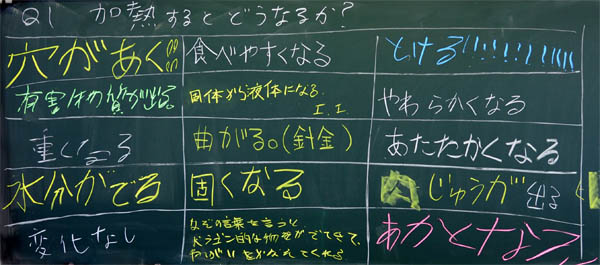 Q1 加熱するとどうなるか?
穴があく!!
食べやすくなる
とける!!!!!!!!!!!
有害物質が出る。
固体から液体になる。
I.I.
やわらかくなる
重くなる
曲がる。(針金)
あたたかくなる
水分がでる
固くなる
じゅうが出る
変化なし
なぞの言葉を言うと
ドラゴン的な物体がでてきて、
ねがいをかなえてくれる